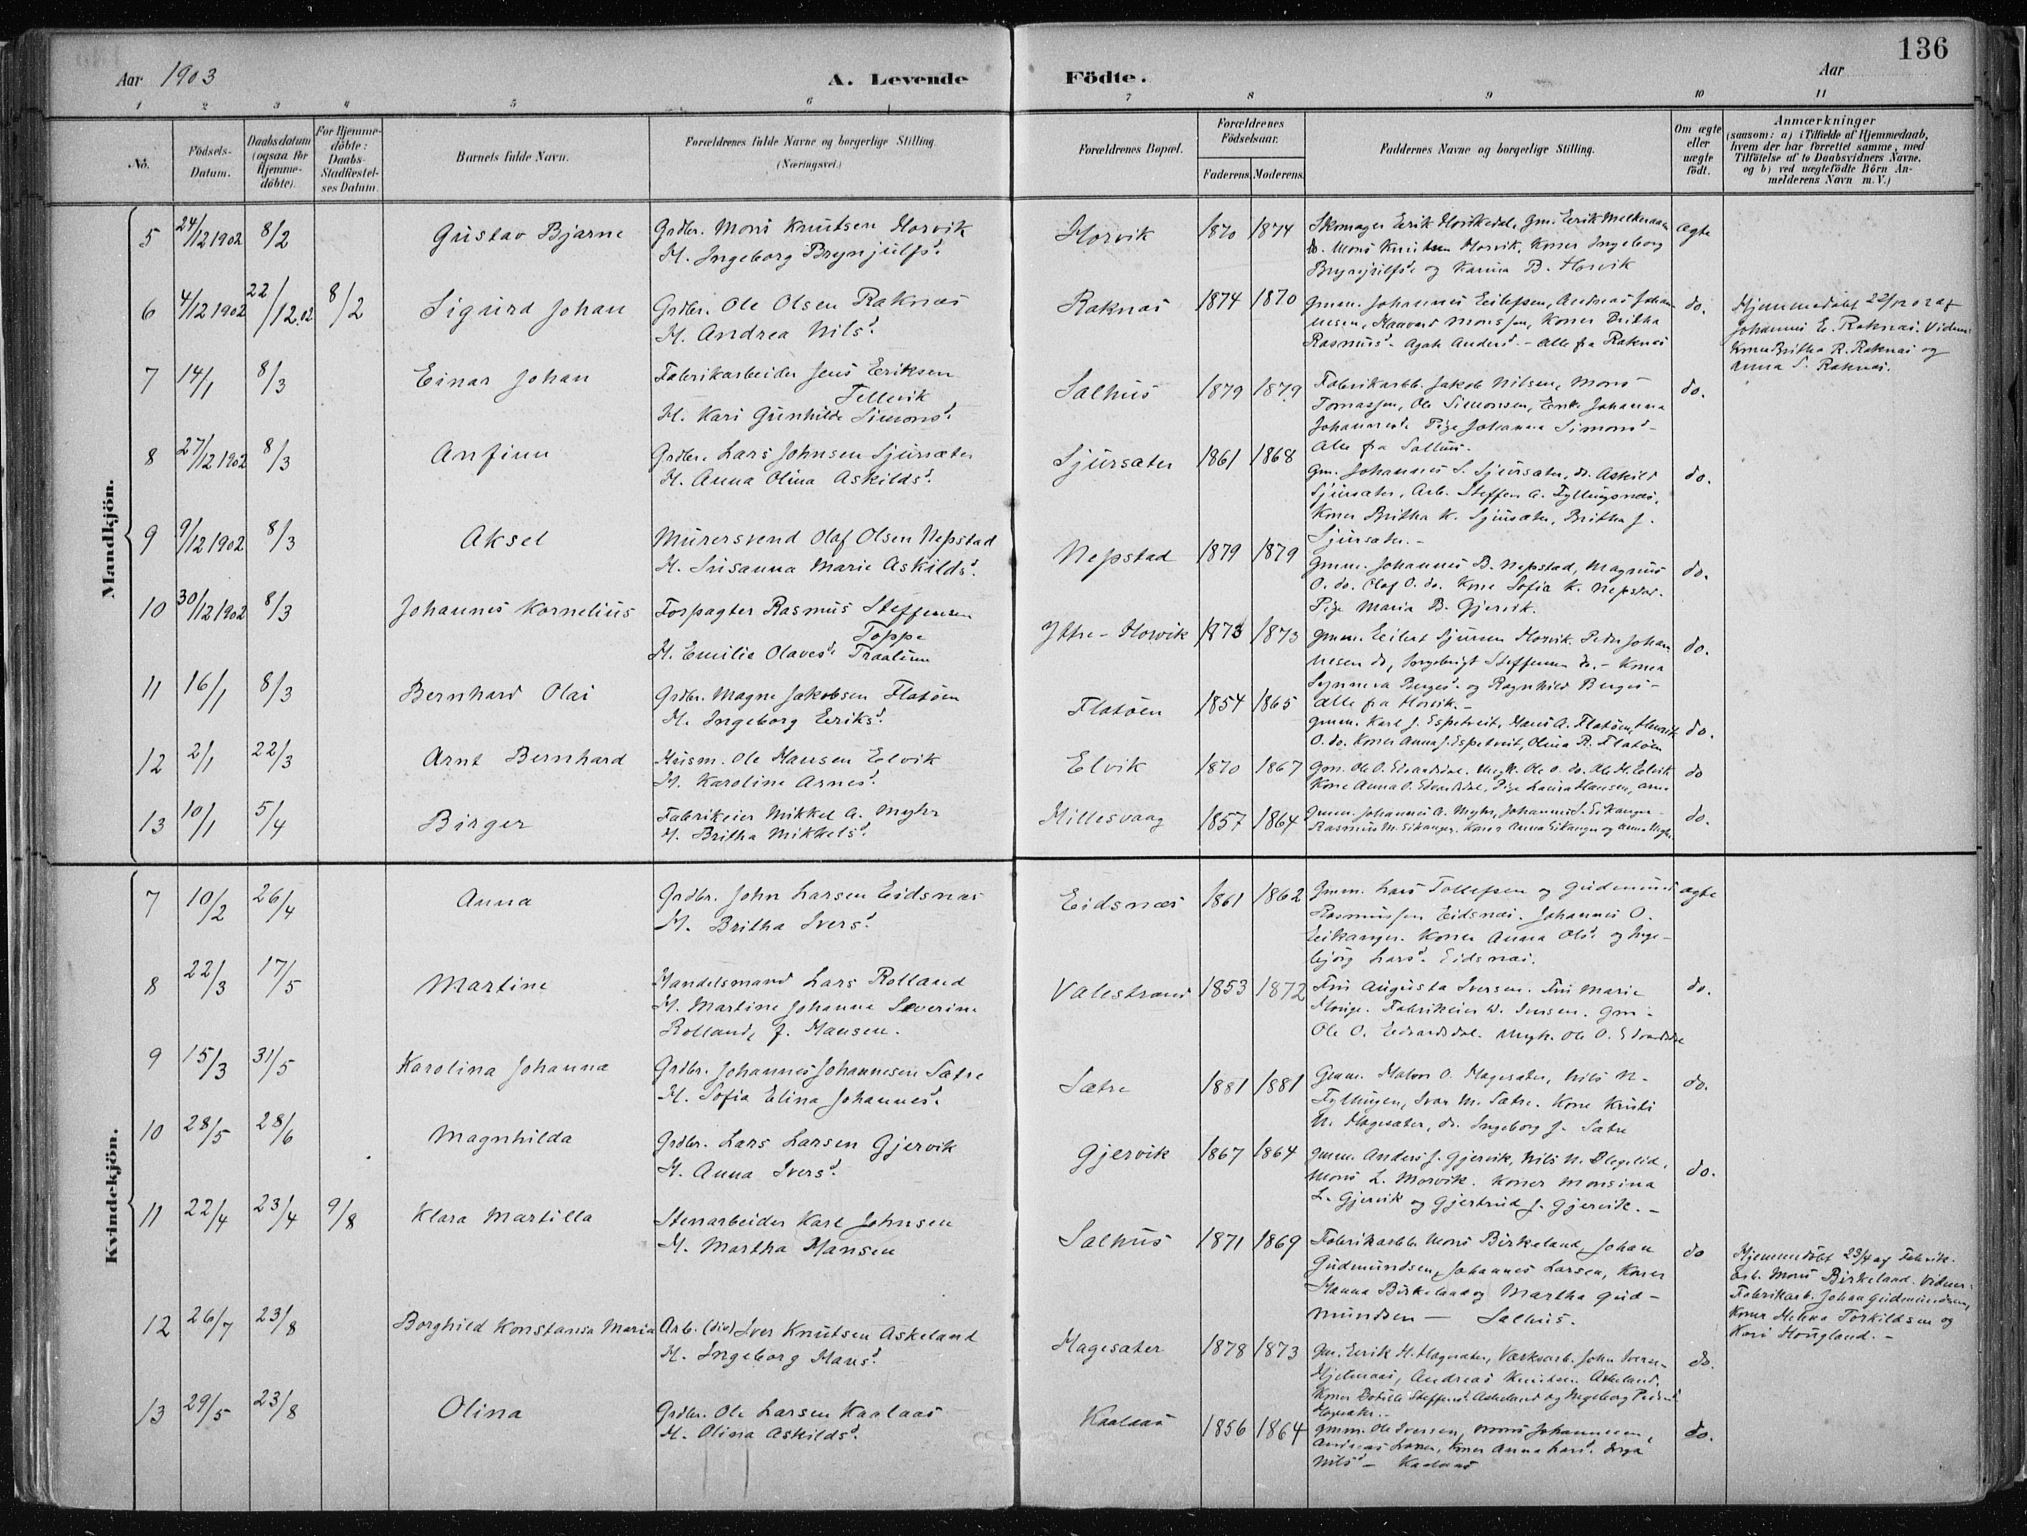 136
Aar 1903
A. Levende Födte.
Aar
1 2 3 4 5 6 7 8 9 10 11
No.
Födsels-Datum.
Daabsdatum (ogsaa for Hjemme-döbte).
For Hjemme-döbte: Daabs-Stadfæstel-ses Datum.
Barnets fulde Navn.
Forældrenes fulde Navne og borgerlige Stilling (Næringsvei.)
Forældrenes Bopæl.
Forældrenes Födselsaar.
Faderens. Moderens.
Faddernes Navne og borgerlige Stilling.
Om ægte eller uægte födt.
Anmærkninger
(saasom: a) i Tilfælde af Hjemmedaab, hvem der har forrettet samme, med Tilföielse af to Daabsvidners Navne, og b) ved uægtefödte Börn An-melderens Navn m. V.)
Mandkjön.
5 24/12 1902 8/2 Gustav Bjarne Grdbr. Mons Knutsen Horvik
H. Ingeborg Brynjulfsd. Horvik 1870 1874 Skomager Erik Gm. Erik
do. Mons Knutsen Horvik, Koner Ingeborg
Brynjulfsd. og Karina B. Horvik ægte
6 4/12 1902 22/12.02 8/2 Sigurd Johan Grdbr. Ole Olsen Raknæs
H. Andrea Nilsd. Raknæs 1874 1870 Gmm. Johannes Eilefsen, Andreas Johan
nesen, Haavard Monssen, Koner Britha
Rasmusd. Agate Andersd. – alle fra Raknæs do.
Hjemmedøbt 22/12 02 af
Johannes E. Raknæs. Vidner
Kone Britha R. Raknæs og
Anna S. Raknæs.
7 14/1 8/3 Einar Johan Fabrikarbeider Jens Eriksen
Tellevik
H. Kari Gunhilde Simonsd. Salhus 1879 1879 Fabrikarb. Jakob Nilsen, Mons
Tomassen, Ole Simonsen, Enke Johanna
Johannesd. Pige Johanna Simonsd –
Alle fra Salhus. do.
8 27/12 1902 8/3 Anfinn Grdbr. Lars Johnsen Sjursæter
H. Anna Olina Askildsd. Sjursæter 1861 1868 Gm. Johannes S. Sjursæter, do. Askild
Sjursæter, Arb. Steffen A. Fyllingsnæs,
Koner Britha K. Sjursæter, Britha J.
Sjursæter. – do.
9 9/12 1902 8/3 Aksel Murersvend Olaf Olsen Nepstad
H. Susanna Marie Askildsd. Nepstad 1879 1879 Gmm. Johannes B. Nepstad, Magnus
O. do. Olaf O. do. Kone Sofia K. Nepstad.
Pige Maria B. Gjervik. do.
10 30/12 1902 8/3 Johannes Kornelius Forpagter Rasmus Steffensen
Toppe
H. Emilie Olavesd. Traalum Ytre-Horvik 1873 1873 Gmm. Eilert Sjursen Horvik. Peder Johan
nesen do, Ingebrigt Steffensen do. – Koner
Synneva Bergesd. og Ragnhild Berges –
Alle fra Horvik. – do.
11 16/1 8/3 Bernhard Olai Grdbr. Magne Jakobsen Flatøen
H. Ingeborg Eriksd. Flatøen 1854 1865 Gmm. Karl J. Espetveit, Hans A. Flatøen, Henrik
O. do. Koner Anna J. Espetveit, Olina R. Flatøen do.
12 2/1 22/3 Arnt Bernhard Husm. Ole Hansen Elvik
H. Karoline Arnesd. Elvik 1870 1867 Gm. Ole O. Edvardsdal. Ungk. Ole O. do. Ole H. Elvik
Kone Anna O. Edvardsdal, Pige Laura Hansen, do
13 10/1 5/4 Birger Fabrikeier Mikkel A. Myhr
H. Britha Mikkelsd. Hillesvaag 1857 1864 Gmm. Johannes A. Myhr, Johannes J. Eikanger
Rasmus M. Eikanger. Koner Anna Eikanger og Anna Myhr. do.
Kvindekjön.
7 10/2 26/4 Anna Grdbr. John Larsen Eidsnæs
H. Britha Iversd. Eidsnæs 1861 1862 Gmm. Lars Tollefsen og Gudmund
Rasmussen Eidsnæs. Johannes O.
Eikanger. Koner Anna Olsd. og Inge-
bjørg Larsd. Eidsnæs. ægte
8 22/3 17/5 Martine Handelsmand Lars Rolland
H. Martine Johanna Severine
Rolland, f. Hansen. Valestrand 1853 1872 Fru Augusta Iversen. Fru Marie
Fabrikeier W. Iversen. Gm.
Ole O. Edvardsdal. Ungk. Ole O. Edvardsdal do.
9 15/3 31/5 Karolina Johanna Grdbr. Johannes Johannesen Sætre
H. Sofia Elina Johannesd. Sætre 1881 1881 Gmm. Halvor O. Hagesæter, Nils N.
Fyllingen, Ivar M. Sætre. Kone Kristi
N. Hagesæter, do. Ingeborg J. Sætre do.
10 28/5 28/6 Magnhilda Grdbr. Lars Larsen Gjervik
H. Anna Iversd. Gjervik 1867 1864 Gmm. Anders J. Gjervik, Nils N.
Mons L. Morvik. Koner Monsina
L. Gjervik og Gjertrud J. Gjervik. – do.
11 22/4 23/4 9/8 Klara Martilla Stenarbeider Karl Johnsen
H. Martha Hansen Salhus 1871 1869 Fabrikarb. Mons Birkeland, Johan
Gudmundsen, Johannes Larsen, Koner
Hanna Birkeland og Martha Gud-
mundsen – Salhus. do
Hjemmedøbt 23/4 af Fabrik-
arb. Mons Birkeland. Vidner:
Fabrikarb. Johan Gudmundsen,
Koner Helena Torkildsen og
Kari Hougland. –
12 26/7 23/8 Borghild Konstansa Maria Arb. Iver Knutsen Askeland
H. Ingeborg Hansd. Hagesæter 1878 1873 Gm. Erik H. Hagesæter, John Iversen
Hjelmaas, Andreas Knutsen Askeland,
Koner Steffensd. Askeland og Ingeborg Pedersd
Hagesæter. – do.
13 29/5 23/8 Olina Grdbr. Ole Larsen Kaalaas
H. Olina Askildsd. Kaalaas 1856 1864 Gmm. Ole Iversen, Mons Johannesen,
Andreas Larsen, Koner Anna Larsd. Inga
Nilsd – Kaalaas do.